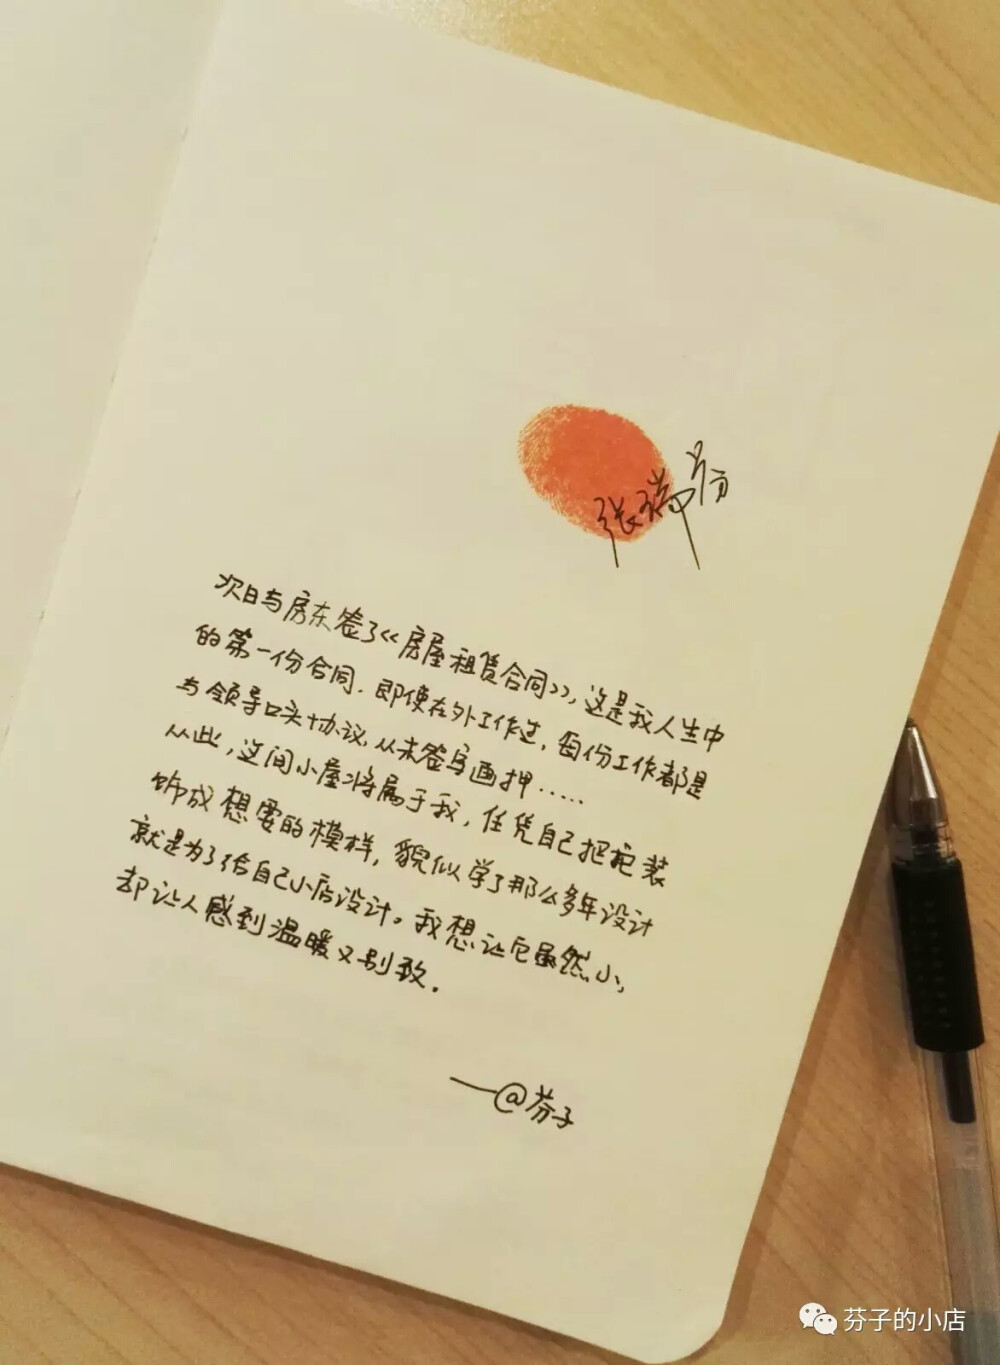 张瑞芬
次日与房东签了《房屋租赁合同》，这是我人生中
的第一份合同.即使在外工作过，每份工作都是
与领导口头协议，从未签字画押.....
从此，这间小屋将属于我，任凭自己把它装
饰成想要的模样，貌似学了那么多年设计
就是为了给自己小店设计。我想让它虽然小，
却让人感到温暖又别致.
——@芬子
芬子的小店